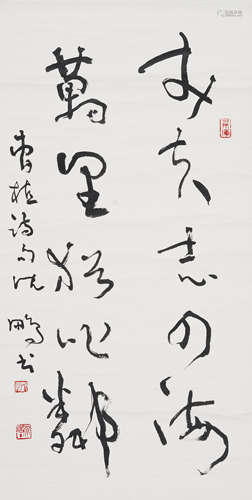 丈夫志四海
萬里猶比鄰
曹植詩句沈
鵬书